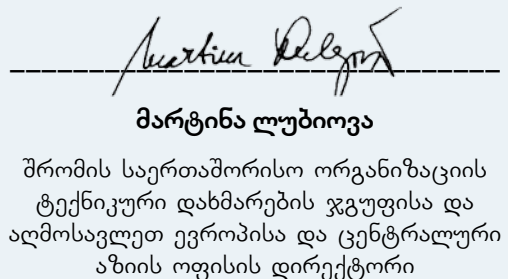 მარტინა ლუბიოვა
შრომის საერთაშორისო ორგანიზაციის
ტექნიკური დახმარების ჯგუფისა და
აღმოსავლეთ ევროპისა და ცენტრალური
აზიის ოფისის დირექტორი